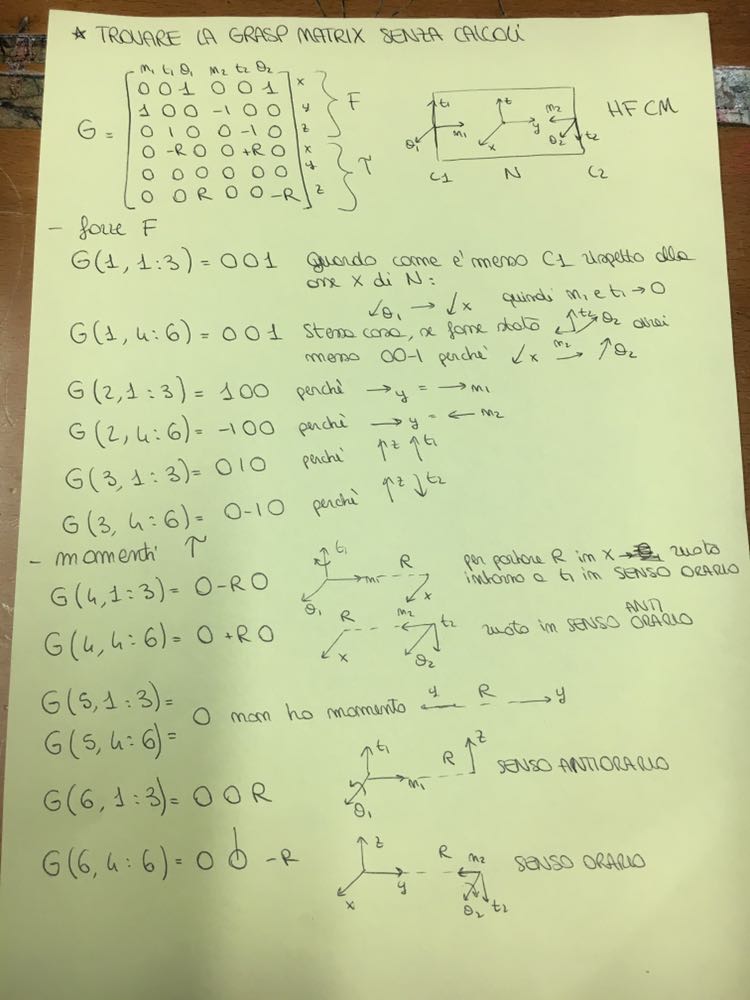 * TROVARE LA GRASP MATRIX SENZA CALCOLI
m1 t1 θ1 m2 t2 θ2
0 0 1 0 0 1 x
1 0 0 -1 0 0 y
G = 0 1 0 0 -1 0 z F
0 -R 0 0 +R 0 x
0 0 0 0 0 0 y τ
0 0 R 0 0 -R z
t1 t m2 HFCM
θ1 m1 x y θ2 t2
C1 N C2
- forze F
G(1, 1:3) = 0 0 1 Guardo come e' messo C1 rispetto alla
asse X di N:
θ1 → x quindi m1 e t1 → 0
G(1, 4:6) = 0 0 1 Stessa cosa, se fosse stato t2 θ2 avrei
m2
messo 00-1 perchè x → θ2
G(2, 1:3) = 1 0 0 perchè → y = → m1
G(2, 4:6) = -1 0 0 perchè → y = ← m2
G(3, 1:3) = 0 1 0 perchè ↑z ↑t1
G(3, 4:6) = 0 -1 0 perchè ↑z ↓t2
- momenti τ
G(4, 1:3) = 0 -R 0 t1 m1 θ1 R x per portare R in X → ruoto
intorno a t1 in SENSO ORARIO
G(4, 4:6) = 0 +R 0 R x m2 t2 θ2 ruoto in SENSO ANTI ORARIO
G(5, 1:3) =
0 non ho momento y ← R → y
G(5, 4:6) =
G(6, 1:3) = 0 0 R t1 m1 θ1 R z SENSO ANTIORARIO
G(6, 4:6) = 0 0 -R z y x R m2 θ2 t2 SENSO ORARIO